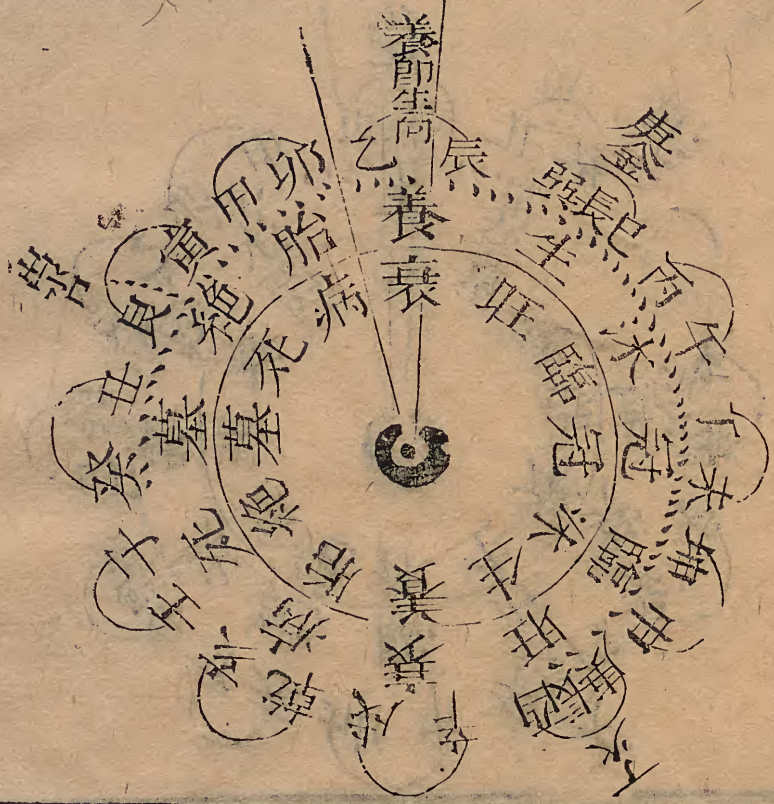 養即生向
乙辰巽長巳丙午丁未坤申庚酉辛戌乾亥壬子癸丑艮寅甲卯
養生沐冠臨旺衰病死墓絕胎
衰旺臨冠沐生養胎絕墓死病